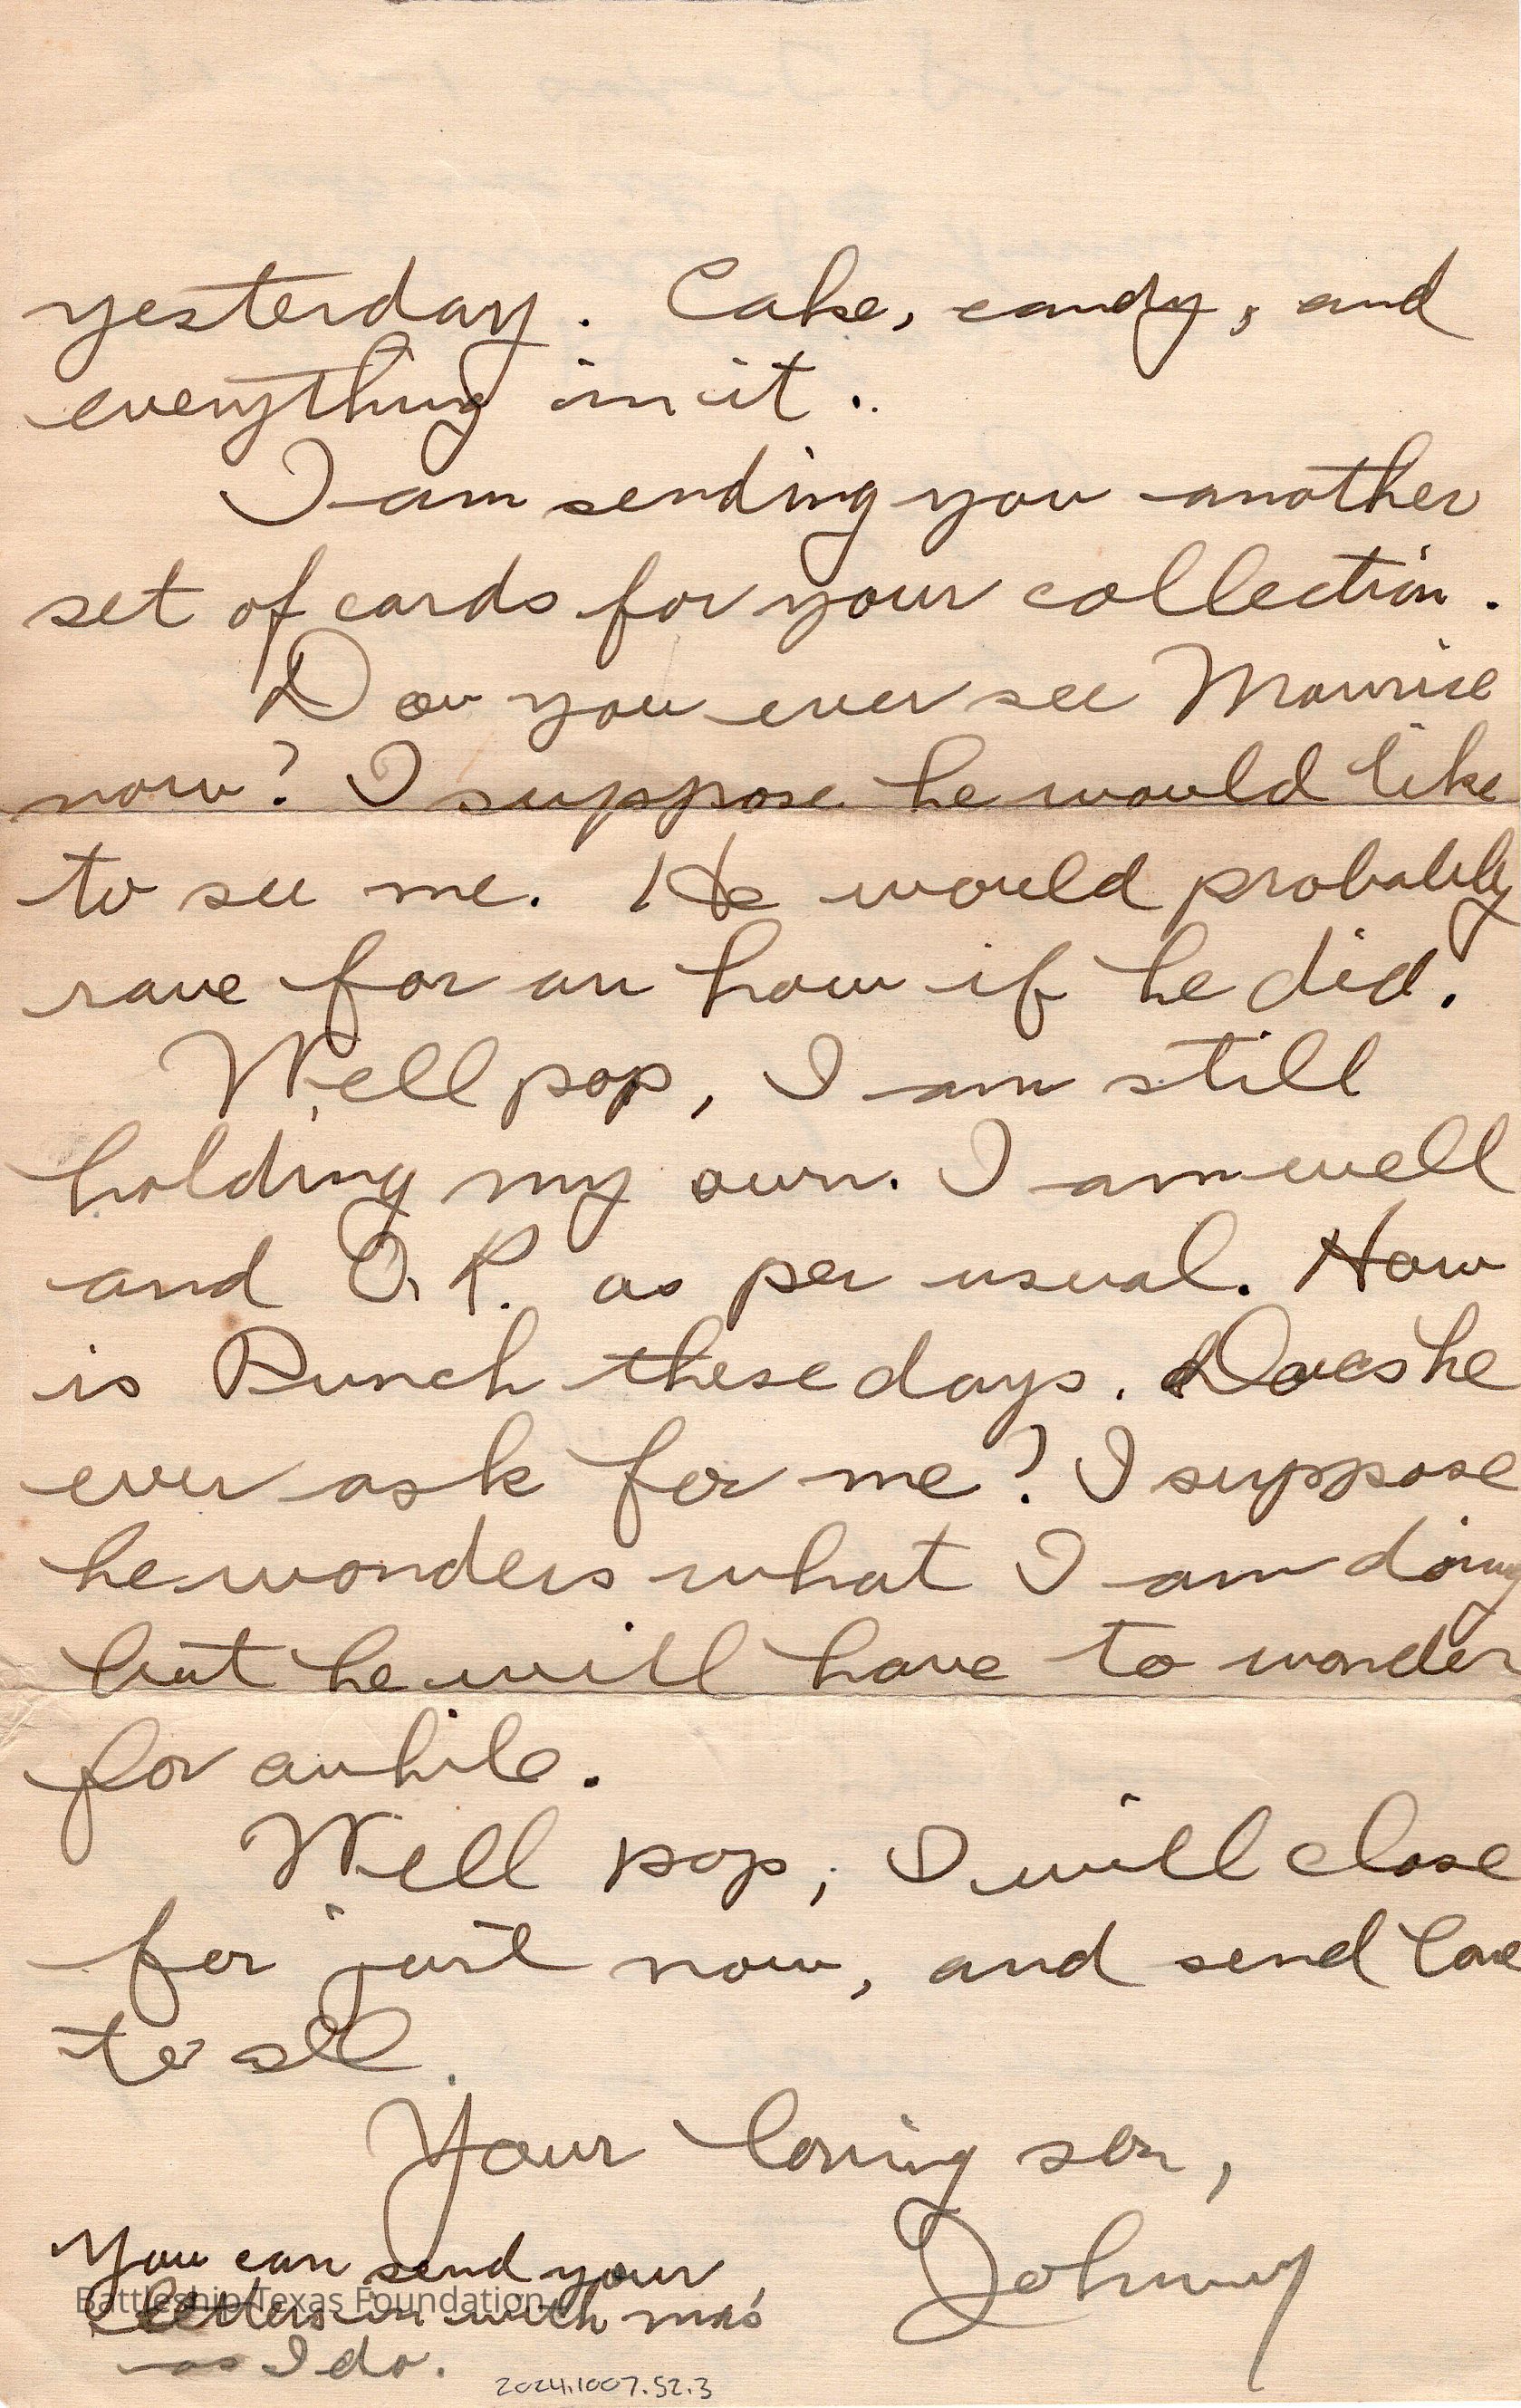 yesterday. Cake, candy, and
everything in it.
I am sending you another
set of cards for your collection.
Do you ever see Maurice
now? I suppose he would like
to see me. He would probably
rave for an hour if he did.
Well pop, I am still
holding my own. I am well
and O.K. as per usual. How
is Punch these days. Does he
ever ask for me? I suppose
he wonders what I am doing
but he will have to wonder
for awhile.
Well pop, I will close
for just now, and send love
to all.
Your loving son,
Johnny
You can send your
letters in with ma's
as I do.
Battleship Texas Foundation
2024.1007.52.3